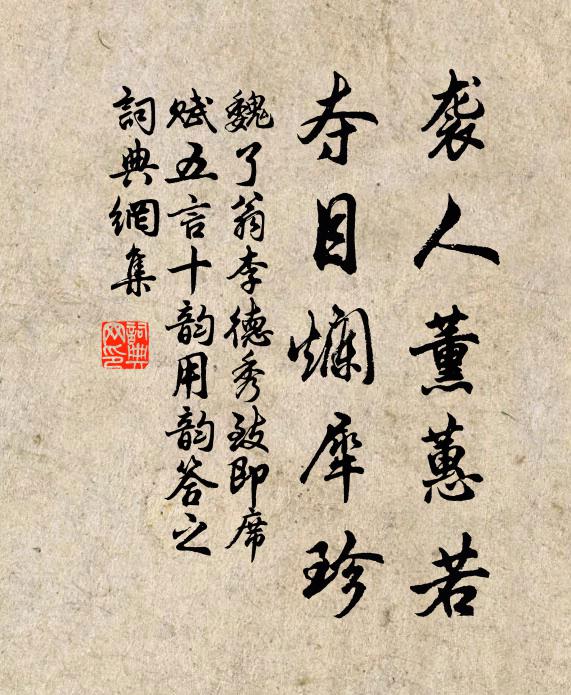 袭人薰蕙若
夺目爛犀珍
魏了翁李德秀致即席
赋五言十韵用韵答之
詞典網集
詞典
网印